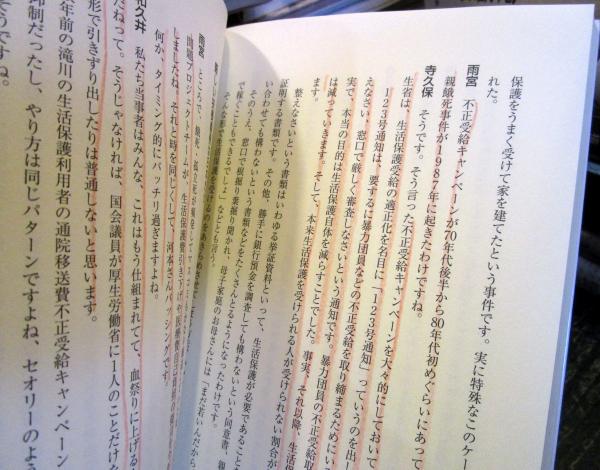 保護をうまく受けて家を建てたという事件です。実に特殊なこのケー
れた。
雨宮 不正受給キャンペーンが70年代後半から80年代初めぐらいにあって
親餓死事件が1987年に起きたわけですね。
寺久保 そうです。そう言った不正受給キャンペーンを大々的にしておいて
生省は、生活保護受給の適正化を名目に「123号通知」っていうのを出し
123号通知は、要するに暴力団員などの不正受給を取り締まるためにい
えなさい、窓口で厳しく審査しなさいという通知です。暴力団員の不正受給
実で、本当の目的は生活保護自体を減らすことでした。事実、それ以降、生活
は減っていきます。そして、本来生活保護を受けられる人が受けられない割合が
ます。
整えなさいという書類はいわゆる挙証資料といって、生活保護が必要であること
証明する書類です。その他、勝手に銀行預金を調査しても構わないという同意書、親
い合わせても構わないという書類などをたくさんとるようになったわけです。
そのうえ、窓口で根掘り葉掘り聞かれ、母子家庭のお母さんには「まだ若いんだから
で稼ぐこともできるでしょ」などとも言う。
雨宮 ところで、餓死、孤立死が頻発
問題プロジェクトチームが、生活保護
しましたね。それと時を同じくして、河本さんバッシングです。
何か、タイミング的にバッチリ過ぎますよね。
和久井 私たち当事者はみんな、これはもう仕組まれてて、血祭りに上げる
だねって。そうじゃなければ、国会議員が厚生労働省に1人のことだけ
形で引きずり出したりは普通しないと思います。
年前の滝川の生活保護利用者の通院移送費不正受給キャンペーン
抑制だったし、やり方は同じパターンですよね、セオリーのよう
そうですね。